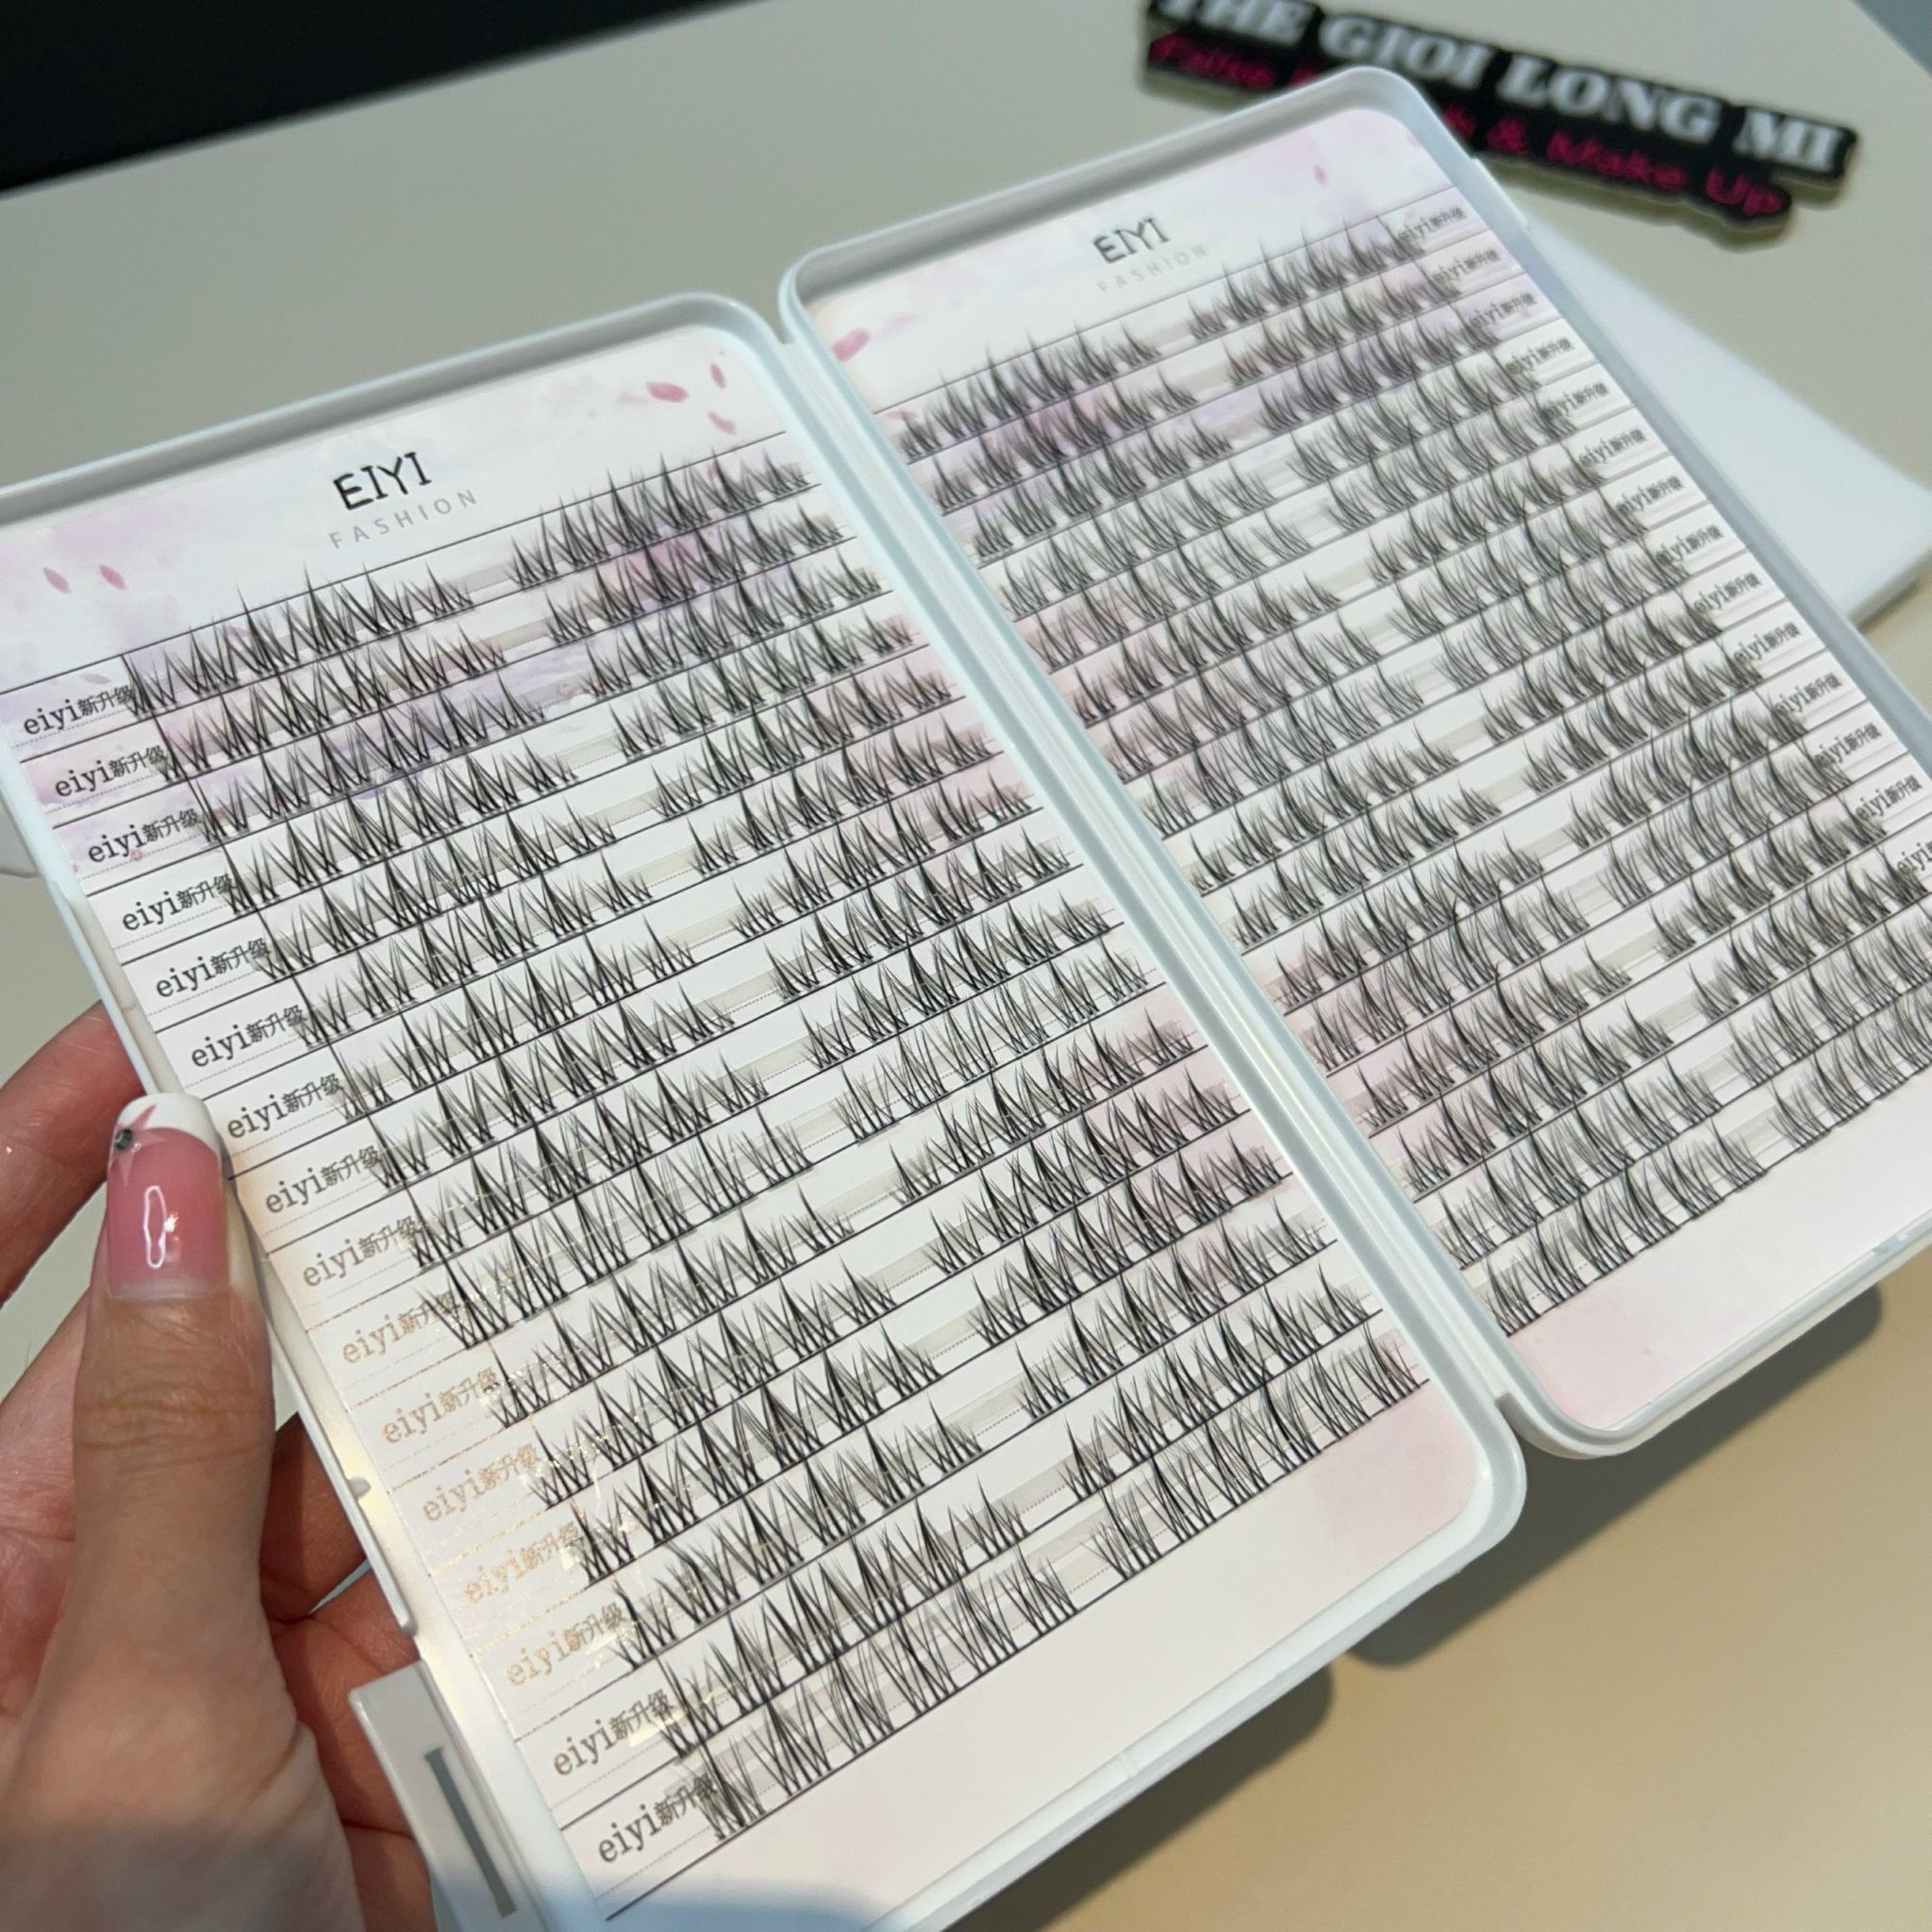 THE GIOI LONG MI
& Make Up
EIYI
FASHION
eiyi新升级
eiyi新升级
eiyi新升级
eiyi新升级
eiyi新升级
eiyi新升级
eiyi新升级
eiyi新升级
eiyi新升级
eiyi新升级
eiyi新升级
eiyi新升级
eiyi新升级
eiyi新升级
eiyi新升级
eiyi新升级
EIYI
FASHION
eiyi新升级
eiyi新升级
eiyi新升级
eiyi新升级
eiyi新升级
eiyi新升级
eiyi新升级
eiyi新升级
eiyi新升级
eiyi新升级
eiyi新升级
eiyi新升级
eiyi新升级